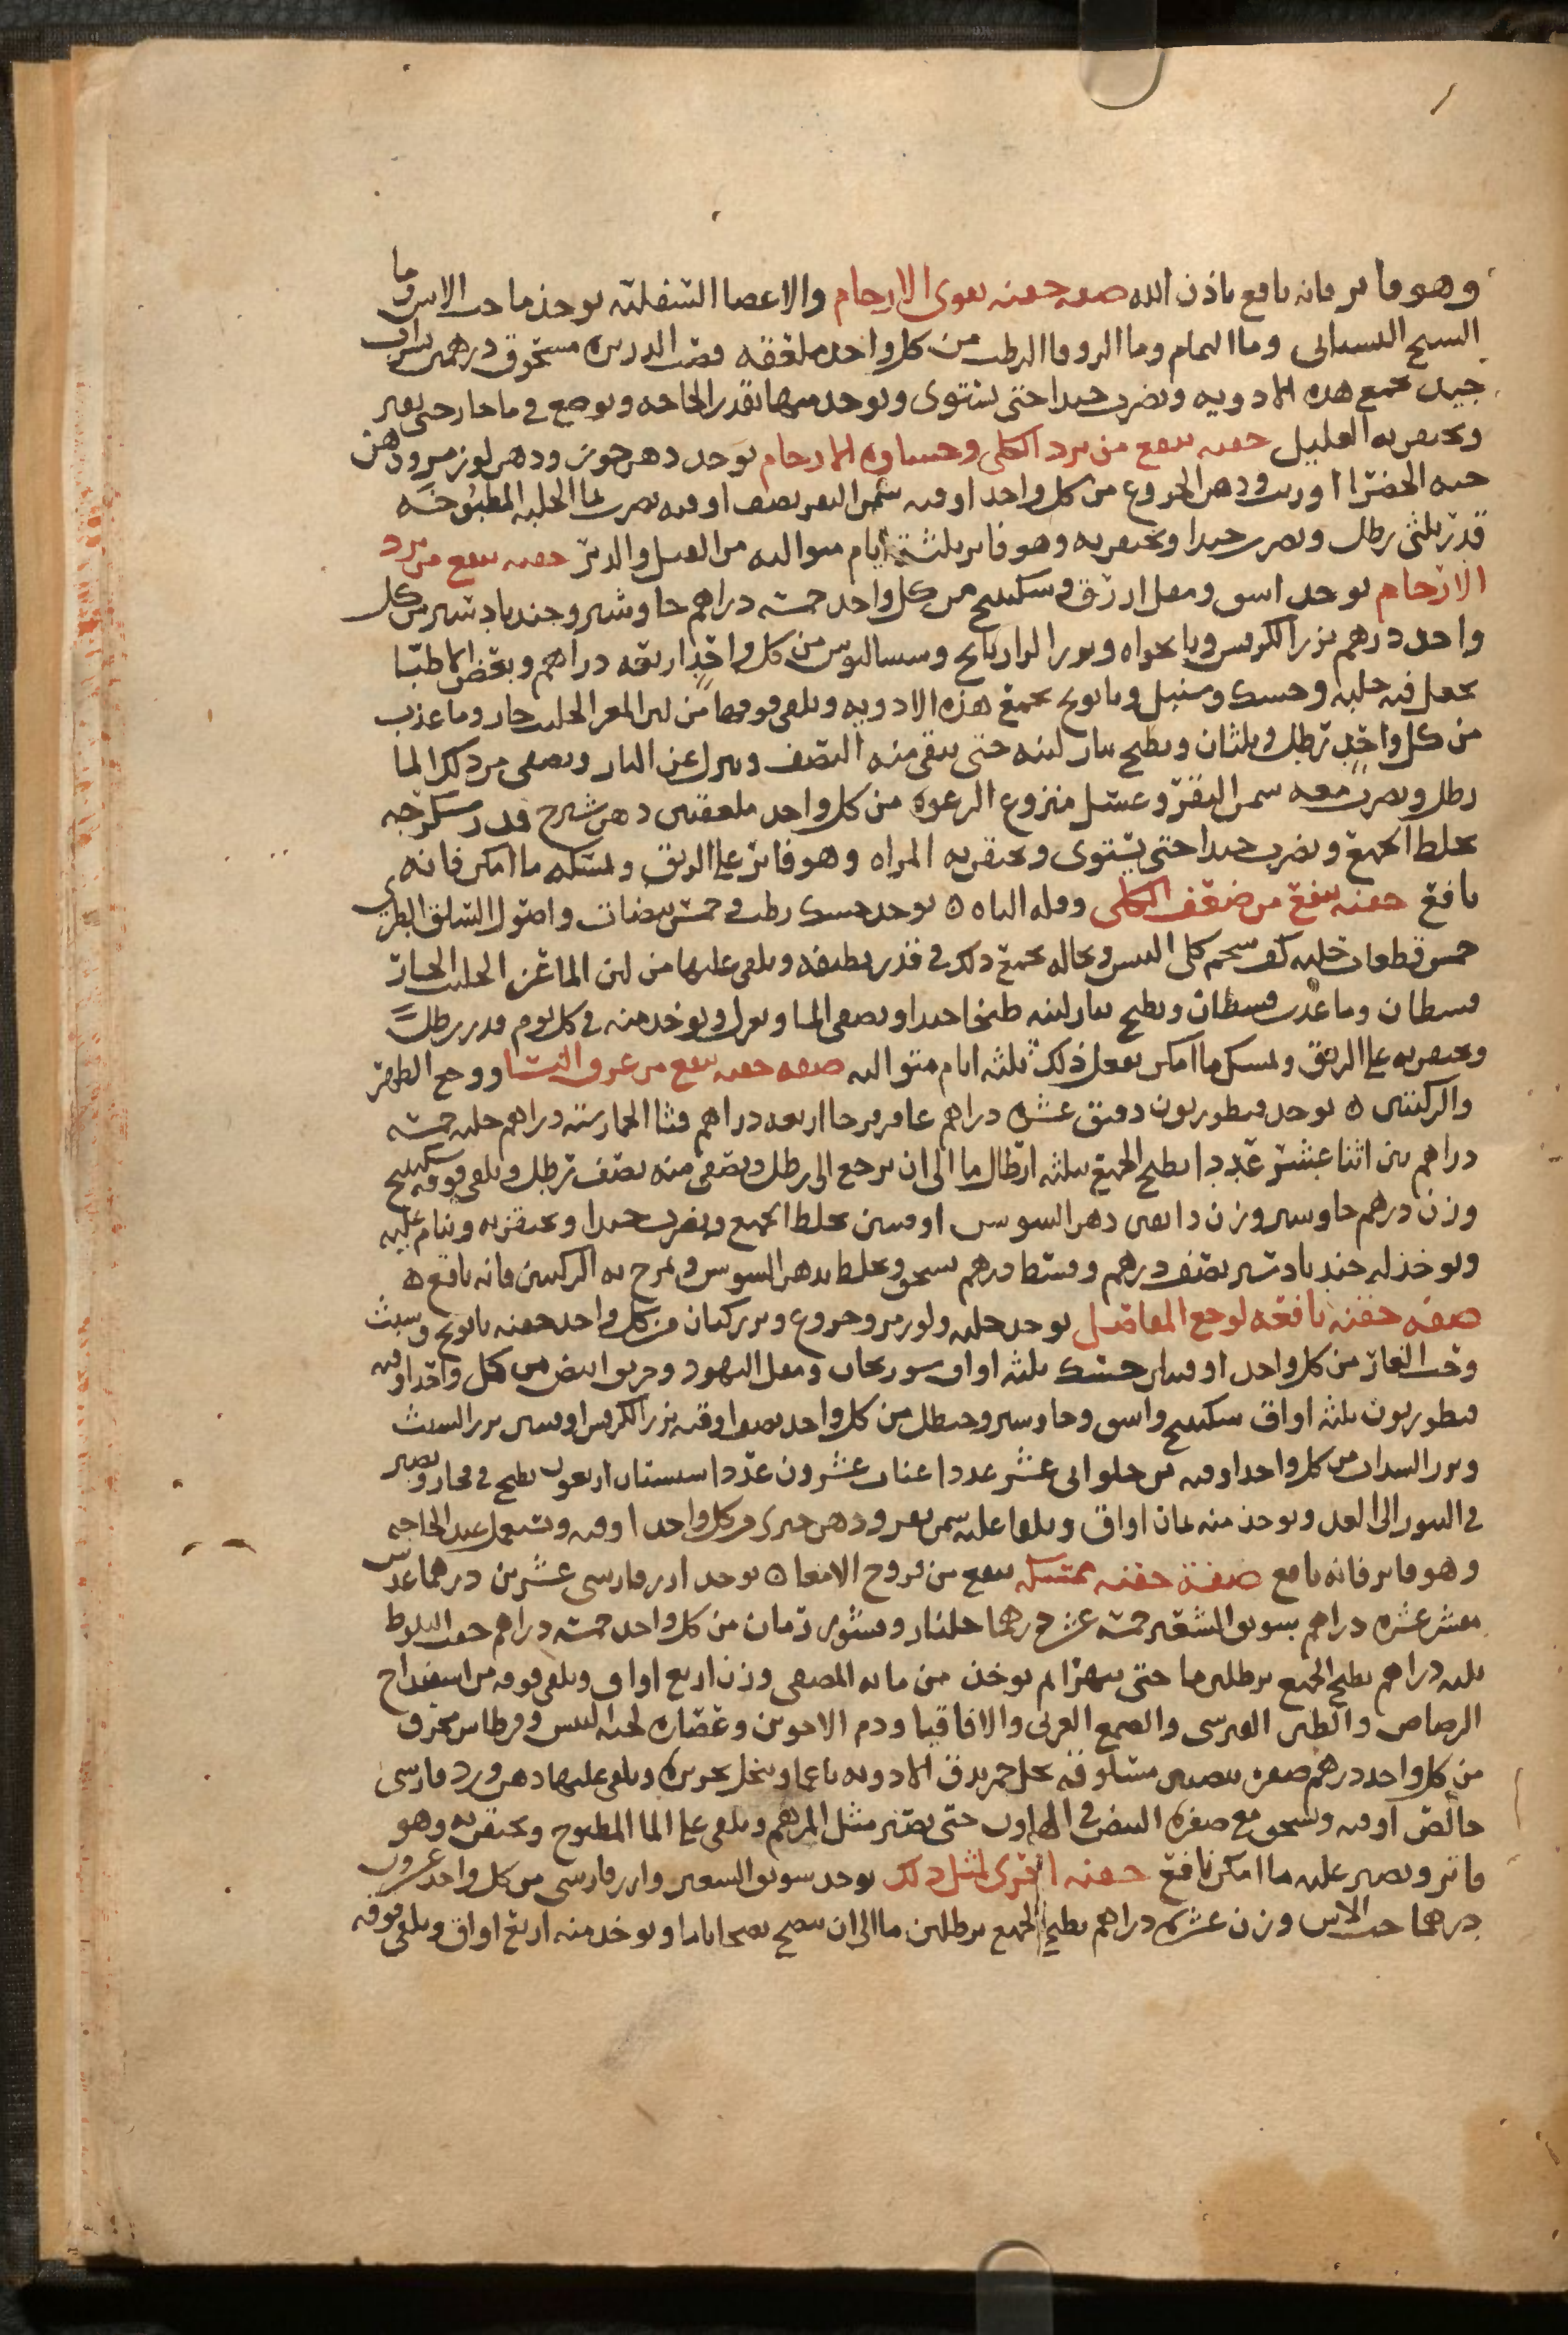 وهو فاتر فانه نافع باذن الله صفه حقنه تقوي الارحام والاعضا السفليه يوخذ ما حب الاس وما
الشيح وما النمام وما الزوفا الرطب من كل واحد ملعقه قصب الدريره مسحوق درهمين شراب
جيد يجمع هذه الادويه ويضرب جيدا حتى يستوى ويوخذ منها بقدر الحاجه ويوضع في ما حار حتى يفتر
ويحتقن به العليل حقنه تنفع من برد الكلى وحساوه الارحام يوخذ دهن جوز ودهن لوز مر ودهن
حبه الخضرا او زيت ودهن الخروع من كل واحد اوقيه سمن البقر نصف اوقيه يضرب بما الحلبه المطبوخه
قدر ثلثي رطل ويضرب جيدا ويحتقن به وهو فاتر ثلثة ايام متواليه من القبل والدبر حقنه تنفع من برد
الارحام يوخذ اشق ومقل ازرق وسكبينج من كل واحد خمسه دراهم جاوشير وجندبادستر من كل
واحد درهم بزر الكرفس ونانخواه وبزر الرازيانج وسساليوس من كل واحد اربعه دراهم وبعض الاطبا
يجعل فيه حلبه وحسك وسنبل وبابونج يجمع هذه الادويه ويلقى فوقها من لبن المعز الحليب حار وما عذب
من كل واحد رطل وثلثان ويطبخ بنار لينه حتى يبقى منه النصف وينزل عن النار ويصفى من ذلك الما
رطل ويضرب معه سمن البقر وعسل منزوع الرغوه من كل واحد ملعقتين دهن شيرج قدر سكرجه
يخلط الجميع ويضرب جيدا حتى يستوى ويحتقن به المراه وهو فاتر على الريق ولتمسكه ما امكن فانه
نافع حقنه تنفع من ضعف الكلى وقله الباه ه يوخذ حسك رطب في خمس بيضات واصول السلق الطري
خمس قطعات حلبه كف شحم كلى التيس ونخاله يجمع ذلك في قدر نظيفه ويلقى عليها من لبن الماعز الحليب الحار
قسطان وما عذب قسطان ويطبخ بنار لينه طبخا جيدا ويصفى الما ويعزل ويوخذ منه في كل يوم قدر رطل
ويحتقن به على الريق ولتمسك ما امكن يفعل ذلك ثلثه ايام متواليه صفه حقنه تنفع من عرق النسا ووجع الظهر
والركبتين ه يوخذ قنطوريون دقيق عشره دراهم عاقر قرحا اربعه دراهم قثا الحمار سته دراهم حلبه خمسه
دراهم تين اثنا عشر عددا يطبخ الجميع بثلثه ارطال ما الى ان يرجع الى رطل ويصفى منه نصف رطل ويلقى فوقه سكبينج
وزن درهم جاوشير وزن دانقين دهن السوسن اوقيتين يخلط الجميع ويضرب جيدا ويحتقن به وينام عليه
ويوخذ له جندبادستر نصف درهم وقسط درهم يسحق ويخلط بدهن السوسن ويمرخ به الركبتين فانه نافع ه
صفه حقنه نافعه لوجع المفاصل يوخذ حلبه ولوز مر وخروع وبزر كتان من كل واحد حفنه بابونج وشبث
وحب الغار من كل واحد اوقيتان حسك ثلثه اواق سورنجان ومقل اليهود وخربق ابيض من كل واحد اوقيه
قنطوريون ثلثه اواق سكبينج واشق وجاوشير وحنظل من كل واحد نصف اوقيه بزر الكرفس اوقيتين بزر الشبث
وبزر السداب من كل واحد اوقيه تين حلواني عشر عددا عناب عشرون عددا سبستان اربعون يطبخ في فخار ويصير
في التنور الى الغد ويوخذ منه ثمان اواق ويلقا عليه سمن بقر ودهن خيري من كل واحد اوقيه ويستعمل عند الحاجه
وهو فاتر فانه نافع صفة حقنه ممسكه تنفع من قروح الامعا ه يوخذ ارز فارسي عشرين درهما عدس
مقشر عشره دراهم سويق الشعير خمسه عشر درهما جلنار وقشور رمان من كل واحد خمسه دراهم جفت البلوط
ثلثه دراهم يطبخ الجميع برطلين ما حتى يتهرا ثم يوخذ من مايه المصفى وزن اربع اواق ويلقى فوقه من اسفيداج
الرصاص والطين القبرسي والصمغ العربي والاقاقيا ودم الاخوين وعصاره لحيه التيس وقرطاس محرق
من كل واحد درهم صفره بيضتين مسلوقه بخل خمر يدق الادويه ناعما وينخل بحريره ويلقى عليها دهن ورد فارسي
خالص اوقيه ويسحق مع صفره البيض في الهاون حتى يصير مثل المرهم ويلقى على الما المطبوخ ويحتقن به وهو
فاتر ويصبر عليه ما امكن نافع حقنه اخرى لمثل ذلك يوخذ سويق الشعير وارز فارسي من كل واحد عشرون
درهما حب الاس وزن عشره دراهم يطبخ الجميع برطلين ما الى ان ينضج نضجا تاما ويوخذ منه اربع اواق ويلقى فوقه